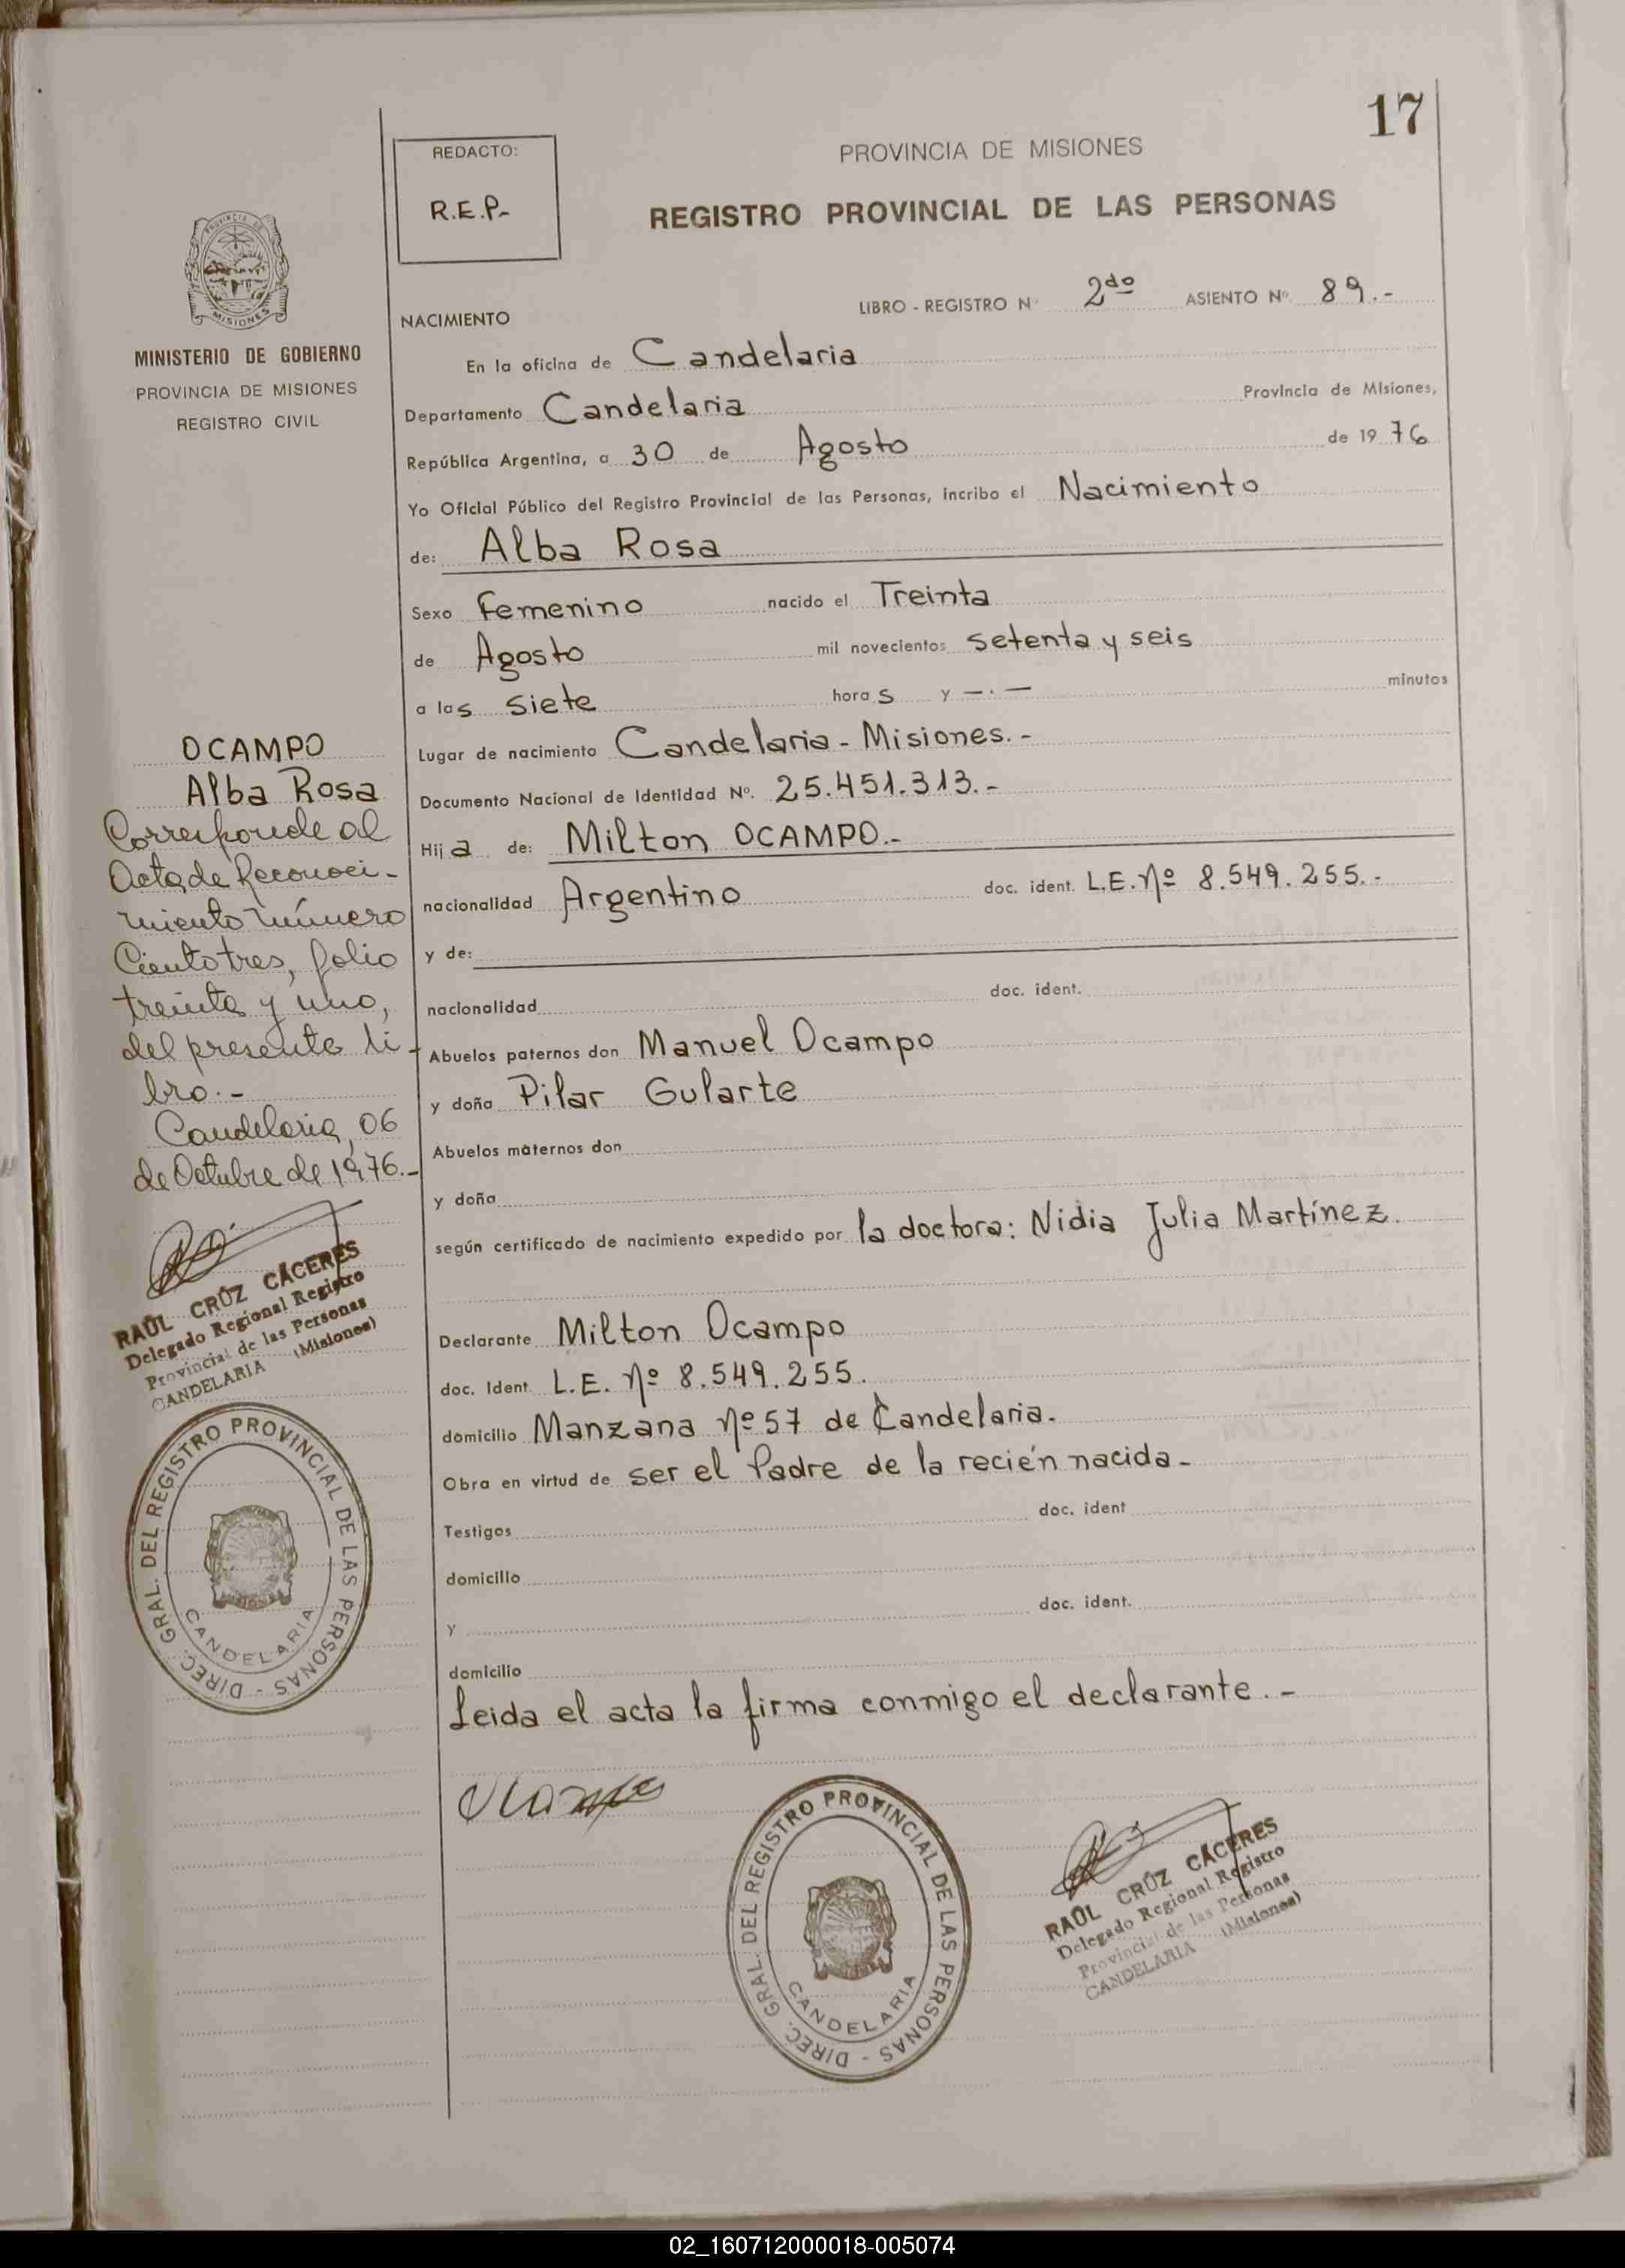 17
REDACTO:
R.E.P.-
PROVINCIA DE MISIONES
REGISTRO PROVINCIAL DE LAS PERSONAS
PROVINCIA DE
MISIONES
MINISTERIO DE GOBIERNO
PROVINCIA DE MISIONES
REGISTRO CIVIL
LIBRO - REGISTRO Nº 2do ASIENTO Nº 89.-
NACIMIENTO
En la oficina de Candelaria
Departamento Candelaria Provincia de Misiones,
República Argentina, a 30 de Agosto de 1976
Yo Oficial Público del Registro Provincial de las Personas, incribo el Nacimiento
de: Alba Rosa
Sexo Femenino nacido el Treinta
de Agosto mil novecientos setenta y seis
a las siete horas y -.- minutos
Lugar de nacimiento Candelaria - Misiones.-
Documento Nacional de Identidad Nº. 25.451.313.-
Hija de: Milton OCAMPO.-
nacionalidad Argentino doc. ident. L.E. Nº 8.549.255.-
y de:
nacionalidad doc. ident.
Abuelos paternos don Manuel Ocampo
y doña Pilar Gularte
Abuelos maternos don
y doña
según certificado de nacimiento expedido por la doctora: Nidia Julia Martínez.
Declarante Milton Ocampo
doc. Ident. L.E. Nº 8.549.255.
domicilio Manzana Nº 57 de Candelaria.
Obra en virtud de ser el Padre de la recién nacida-
Testigos doc. ident
domicilio
y doc. ident.
domicilio
Leida el acta la firma conmigo el declarante.-
OCAMPO
Alba Rosa
Corresponde al
Acta de Reconoci-
miento número
Ciento tres, folio
treinta y uno,
del presente li-
bro.-
Candelaria, 06
de Octubre de 1976.-
RAÚL CRÚZ CÁCERES
Delegado Regional Registro
Provincial de las Personas
CANDELARIA (Misiones)
DIREC. GRAL. DEL REGISTRO PROVINCIAL DE LAS PERSONAS -
CANDELARIA
DIREC. GRAL. DEL REGISTRO PROVINCIAL DE LAS PERSONAS -
CANDELARIA
RAÚL CRÚZ CÁCERES
Delegado Regional Registro
Provincial de las Personas
CANDELARIA (Misiones)
02_160712000018-005074